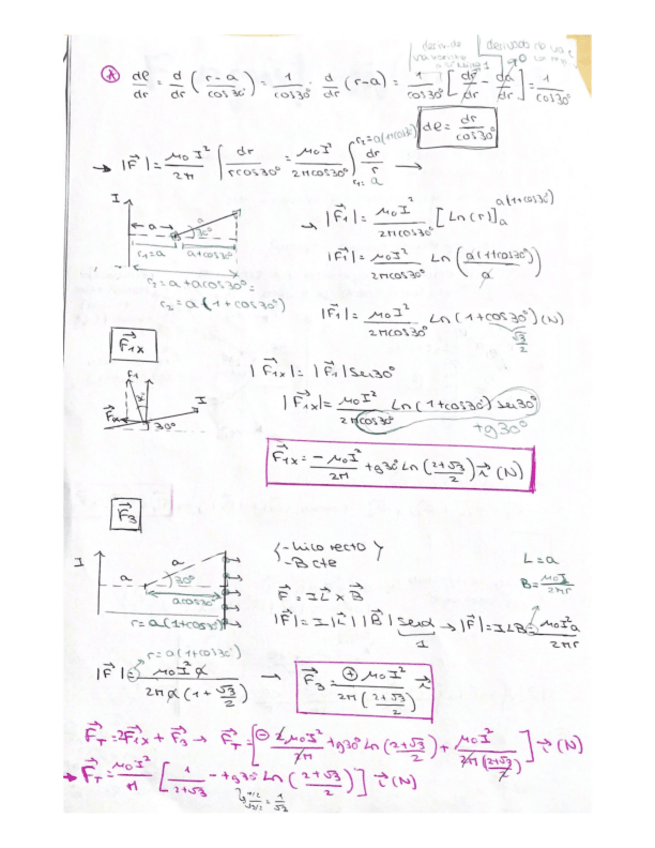 derivada
derivada
* dℓ/dr = d/dr (r-a/cos30°) = 1/cos30° · d/dr (r-a) = 1/cos30° [dr/dr - da/dr] = 1/cos30°
0
dℓ = dr/cos30°
→ |F⃗| = μ₀I²/2π ∫ dr/rcos30° = μ₀I²/2πcos30° ∫ dr/r →
r₂=a(1+cos30°)
r₁=a
I
a
a
30°
r₁=a
a+cos30°
r₂=a+acos30°=
r₂=a(1+cos30°)
→ |F⃗₁| = μ₀I²/2πcos30° [Ln(r)]ₐ a(1+cos30°)
|F⃗₁| = μ₀I²/2πcos30° Ln(a(1+cos30°)/a)
|F⃗₁| = μ₀I²/2πcos30° Ln(1+cos30°)(N)
√3/2
F⃗₁ₓ
F₁
I
F⃗ₓ
30°
|F⃗₁ₓ| = |F⃗₁| sen30°
|F⃗₁ₓ| = μ₀I²/2πcos30° Ln(1+cos30°) sen30°
tg30°
F⃗₁ₓ = -μ₀I²/2π tg30° Ln(2+√3/2) i⃗ (N)
F⃗₃
I
a
a
30°
acos30°
r=a(1+cos30°)
-hilo recto
-B cte
F⃗ = I L⃗ x B⃗
L=a
B=μ₀I/2πr
|F⃗| = I|L⃗||B⃗| senα → |F⃗| = ILB = μ₀I²a/2πr
1
r=a(1+cos30°)
|F⃗| = μ₀I²a/2πa(1+√3/2) → F⃗₃ = + μ₀I²/2π(2+√3/2) i⃗
F⃗_T = 2F⃗₁ₓ + F⃗₃ → F⃗_T = [- 2μ₀I²/2π tg30° Ln(2+√3/2) + μ₀I²/2π(2+√3/2)] i⃗ (N)
→ F⃗_T = μ₀I²/π [1/2+√3 - tg30° Ln(2+√3/2)] i⃗ (N)
1/2/√3/2 = 1/√3